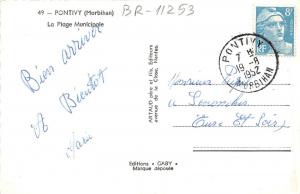 49 - PONTIVY (Morbihan)
La Plage Municipale
BR-11253
Bien arrivée
A Bientôt
ARTAUD père et fils, Éditeurs
avenue de la Close, Nantes.
Editions "GABY"
Marque déposée
8F
RF
PONTIVY
7 H
19 - 8
1952
MORBIHAN
Monsieur
à
(Eure et Loir)